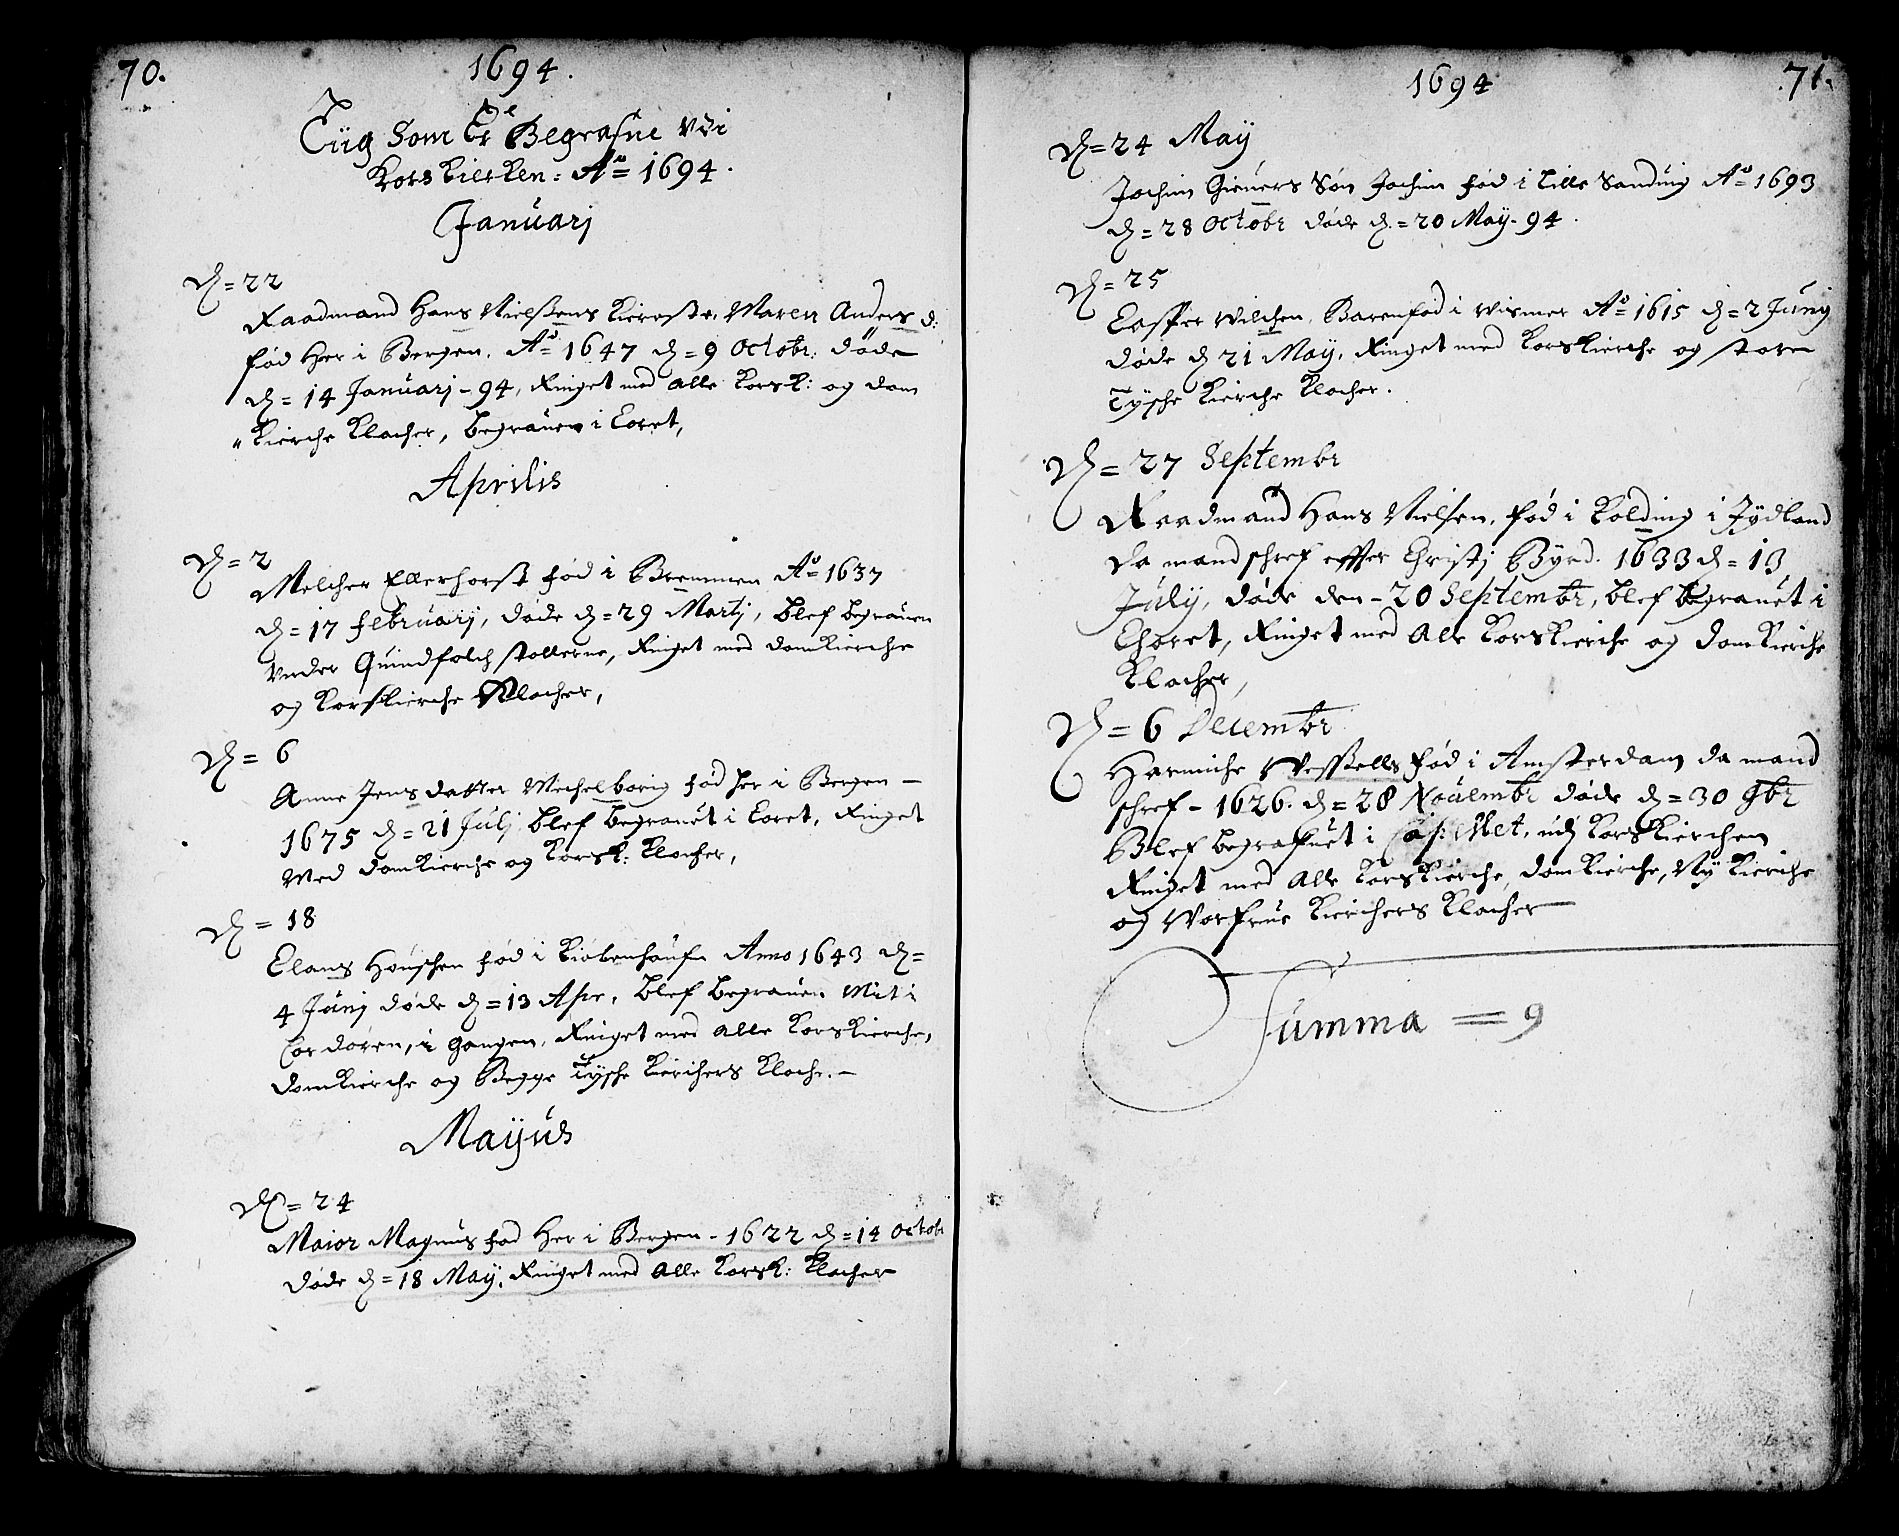 70.
1694.
Liig Som Er Begrafne Vdi
Korskierken: Aº= 1694.
Januarj
D= 22
Raadmand Hans Nielssens Kiereste, Maren Anders d:
fød Her i Bergen. Aº= 1647 d= 9 Octobr: døde
d= 14 Januarj - 94, Ringet med alle Korsk: og dom
"kierche Klocher, begrauen i Coret,
Aprilis
D= 2
Melcher Ellerhorst fød i Bremmen Aº= 1637
d= 17 februarij, døde d= 29 Martj, blef begrauen
Vnder Quindfolch stollerne, Ringet med domkierche
og Korskierche Klocher,
D= 6
Anne Jens datter Mechelborig fød her i Bergen -
1675 d= 21 Julj blef begrauet i Coret, Ringet
Med domkierche og Korsk: Klocher,
D= 18
Claus Houschen fød i Kiøbenhaufn Anno 1643 d=
4 Junj døde d= 13 Apr, blef begrauen Mit i
Cor døren, i Gangen, Ringet med alle Korskierche,
domkierche og Begge Tysche Kierchers Kloche. -
Mayus
D= 24
Maior Magnus fød Her i Bergen - 1622 d= 14 Octobr
døde d= 18 May, Ringet med alle Korsk: Klocher
1694
71.
D= 24 Maÿ
Jochim Gieuers Søn Jochim fød i Lille Sanduig Aº= 1693
d= 28 Octobr døde d.= 20 Maÿ- 94.
D= 25
Casper Wilchen, Barenfød i Wismer Aº= 1615 d= 2 Junij
døde d 21 Maÿ, Ringet med Korskierche og store
Tysche Kierche Klocher.
D= 27 Septembr
Raadmand Hans Nielsen, fød i Kolding i Jÿdland
da mand schref effter Christj Byrd. 1633 d= 13
Julij, døde den - 20 Septembr, blef begrauet i
Choret, Ringet med Alle Korskierche og domkierche
Klocher,
D= 6 Decembr
Harmiche Wessells fød i Amsterdam da mand
schref - 1626. d= 28 Nouembr døde d= 30 9br
Blef begrafuet i Capellet, udj Korskierchen
Ringet med Alle Korskierche, domkierche, Nÿ Kierche
og Worfrue Kierchers Klocher
Summa = 9